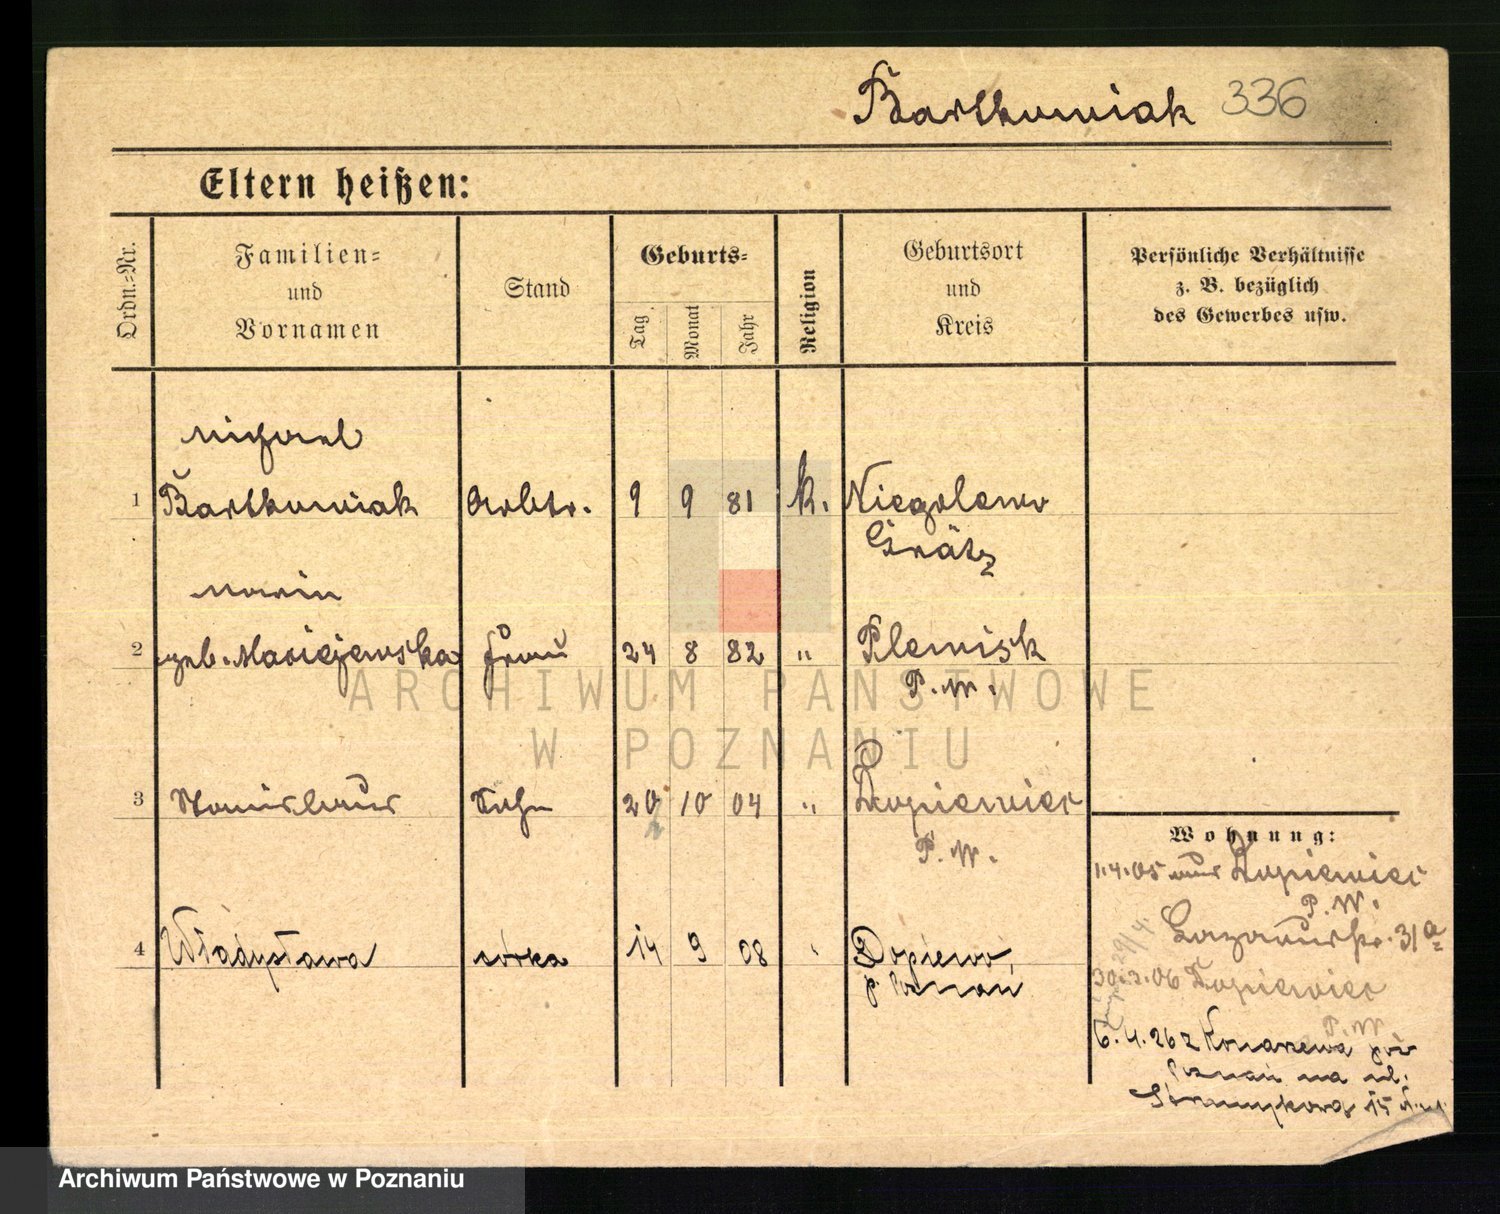 Bartkowiak 336
Eltern heißen:
Ordn.-Nr.
Familien- und Vornamen
Stand
Geburts-
Tag
Monat
Jahr
Religion
Geburtsort und Kreis
Persönliche Verhältnisse z. B. bezüglich des Gewerbes usw.
Michael
1 Bartkowiak Arbtr. 9 9 81 k. Niegolewo
Grätz
Maria
2 geb. Maciejewska Frau 24 8 82 " Plewisk
P. W.
3 Stanislaus Sohn 20 10 04 " Dopiewiec
P. W.
4 Władysława córka 14 9 08 " Dopiewo,
p. Poznań
Wohnung:
1.4.05 aus Dopiewiec
P. W.
Lazarusstr. 31a
29/4.
30.3.06 Dopiewiec
P. W.
6.4.26 z Konarzewa pow
Poznań na ul.
15
ARCHIWUM PAŃSTWOWE
W POZNANIU
Archiwum Państwowe w Poznaniu